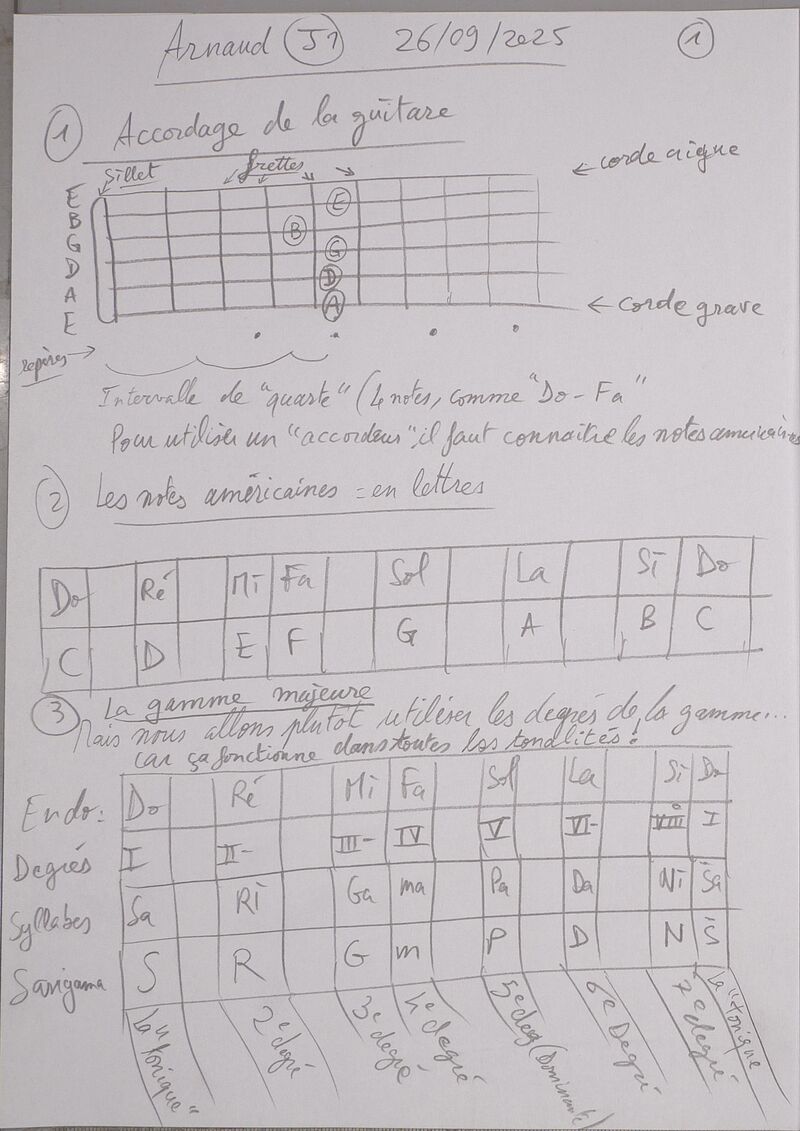 Arnaud J1 26/09/2025 1
1 Accordage de la guitare
sillet frettes ← corde aigue
E
B
G
D
A
E
E
B
G
D
A
← corde grave
repères →
Intervalle de "quarte" (4 notes, comme "Do - Fa"
Pour utiliser un "accordeur" il faut connaître les notes américaines
2 Les notes américaines = en lettres
Do Ré Mi Fa Sol La Si Do
C D E F G A B C
3 La gamme majeure
Mais nous allons plutôt utiliser les degrés de la gamme...
car ça fonctionne dans toutes las tonalités!
En do: Do Ré Mi Fa Sol La Si Do
Degrés I II- III- IV V VI- VIIø I
Syllabes Sa Ri Ga ma Pa Da Ni Ṡa
Sarigama S R G m P D N Ṡ
La "tonique" 2e degré 3e degré 4e degré 5e deg (Dominante) 6e Degré 7e degré La "tonique